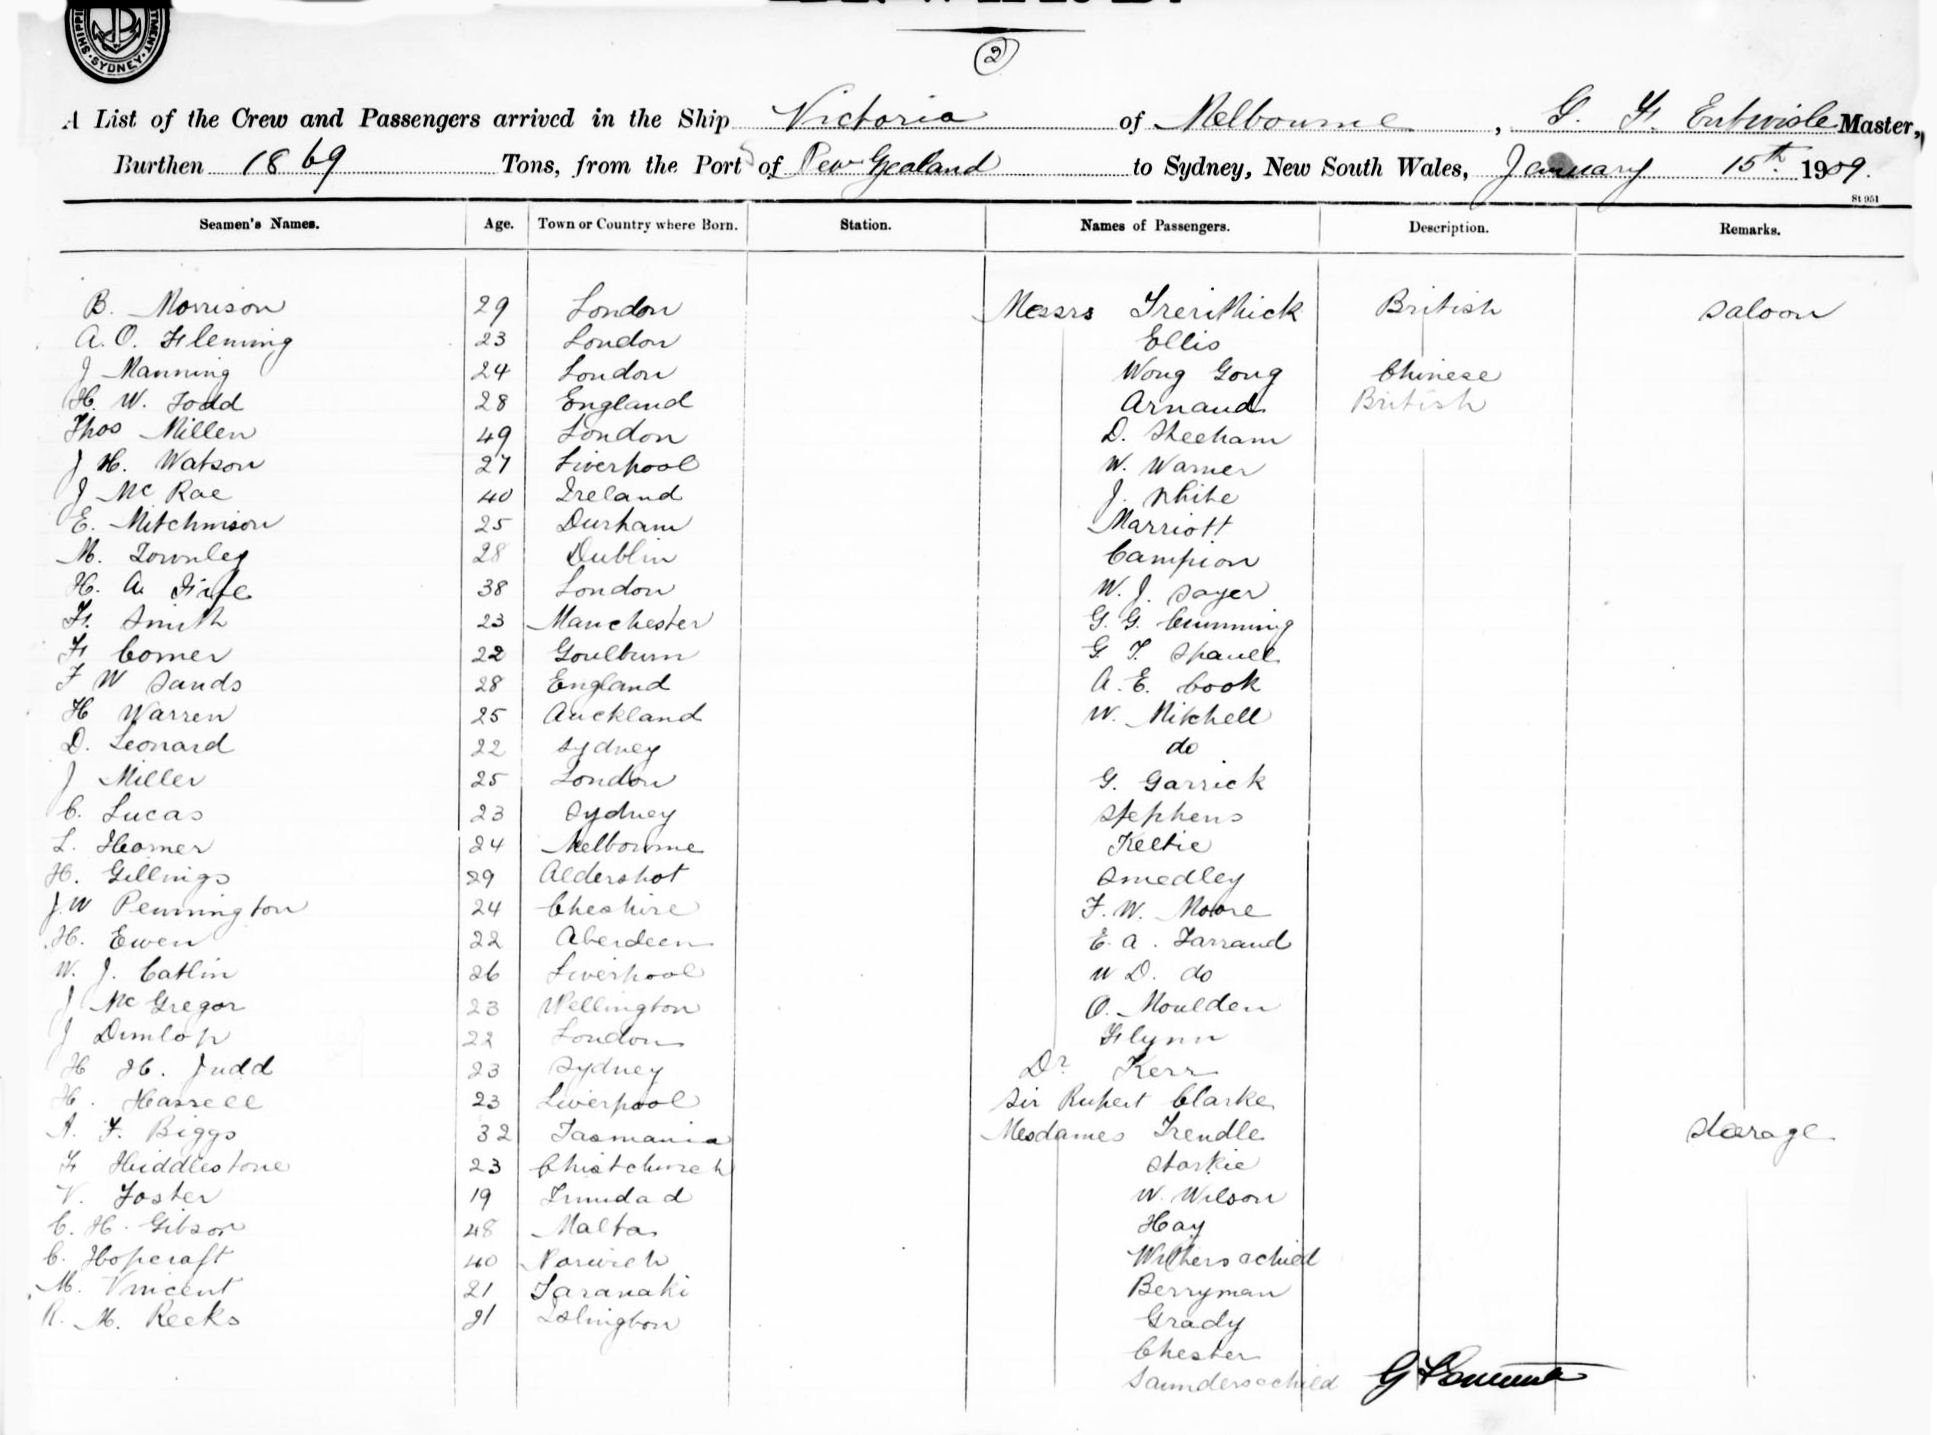 SHIPPI TMENT · SYDNEY ·
2
A List of the Crew and Passengers arrived in the Ship Victoria of Melbourne, G. F. Entwisle Master,
Burthen 1869 Tons, from the Port of New Zealand to Sydney, New South Wales, January 15th 1909.
St 951
Seamen's Names. Age. Town or Country where Born. Station. Names of Passengers. Description. Remarks.
B. Morrison 29 London Messrs Trerithick British Saloon
A. O. Fleming 23 London Ellis
J Manning 24 London Wong Gong Chinese
H. W. Todd 28 England Arnaud British
Thos Millen 49 London D. Sheeham
J H. Watson 27 Liverpool W. Warner
J McRae 40 Ireland J. White
E. Mitchinson 25 Durham Marriott
M. Townley 28 Dublin Campion
H. A. Fife 38 London W. J. Sayer
F. Smith 23 Manchester G. G. Cumming
F Comer 22 Goulburn G. T.
F W Sands 28 England A. E. Cook
H Warren 25 Auckland W. Mitchell
D. Leonard 22 Sydney do
J Miller 25 London G. Garrick
C. Lucas 23 Sydney Stephens
L. Homer 24 Melbourne Keltie
H. Gillings 29 Aldershot Smedley
J. W Pennington 24 Cheshire F. W. Moore
H. Ewen 22 Aberdeen E. A. Farrand
W. J. Catlin 26 Liverpool W D. do
J McGregor 23 Wellington O. Moulden
J Dunlop 22 London Flynn
H H. Judd 23 Sydney Dr Kerr
H. Hassell 23 Liverpool Sir Rupert Clarke
A. F. Biggs 32 Tasmania Mesdames Trendle Starage
F Hiddlestone 23 Chistchurch Starkie
V. Foster 19 Trinidad W. Wilson
C. H. Gibson 48 Malta Hay
C. Hopcraft 40 Norwich Withers & child
M. Vincent 21 Taranaki Berryman
R. M. Reeks 21 Islington Grady
Chester
Saunders & child